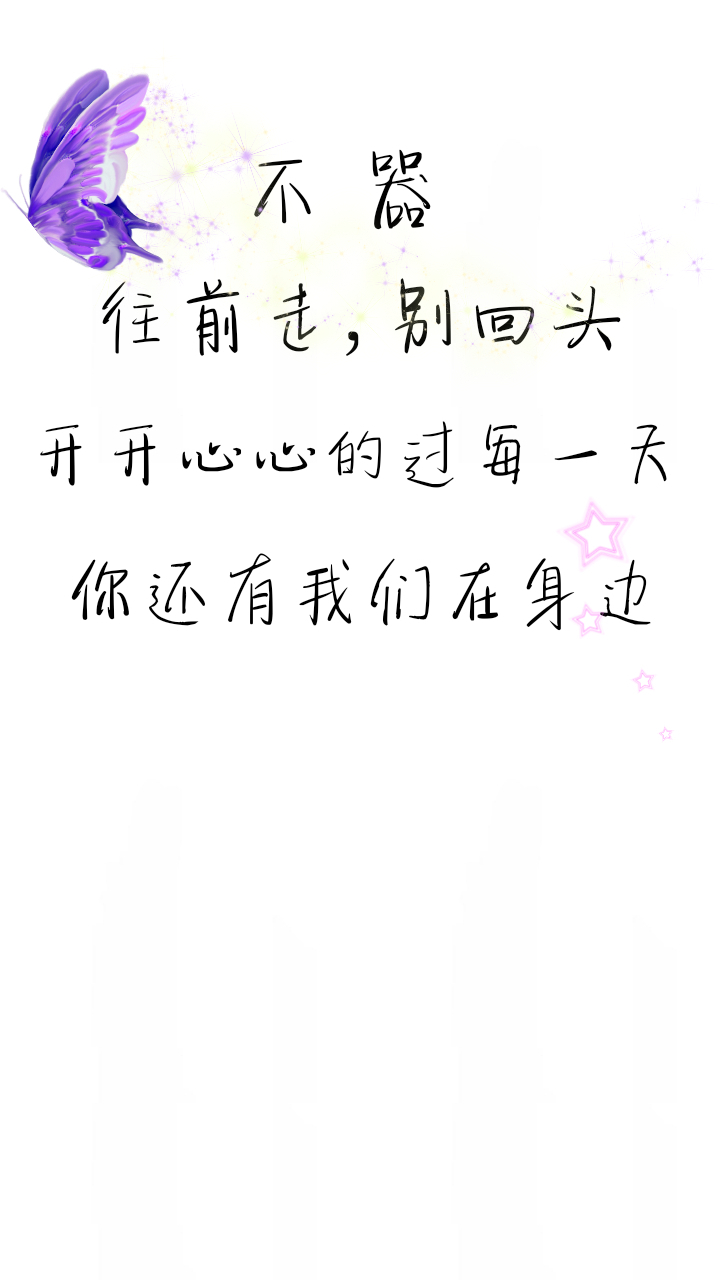 不器
往前走,别回头
开开心心的过每一天
你还有我们在身边